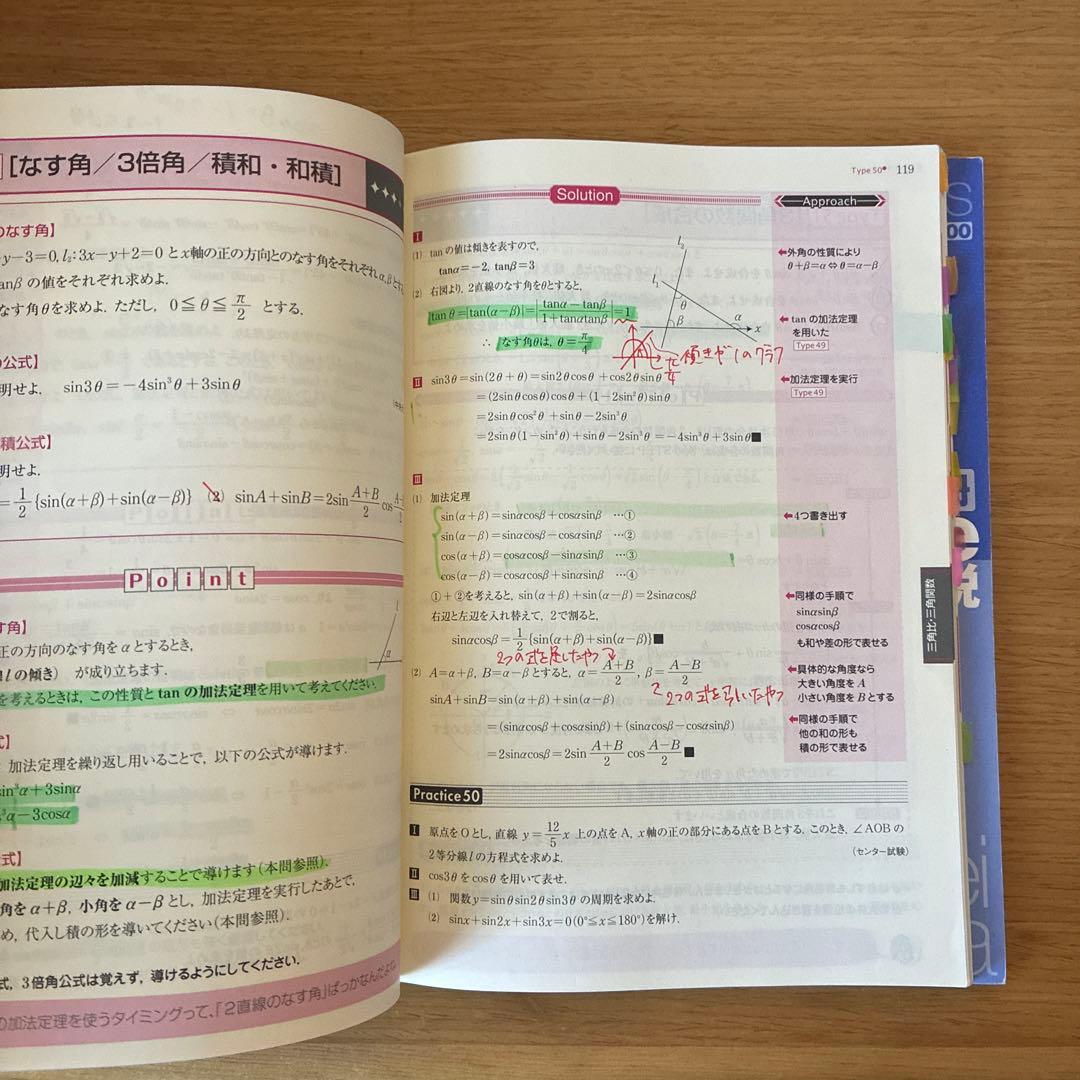 [なす角/3倍角/積和・和積]
のなす角】
y−3=0, l₂:3x−y+2=0 とx軸の正の方向とのなす角をそれぞれα, βとする
tanβの値をそれぞれ求めよ.
なす角θを求めよ. ただし, 0≦θ≦π/2 とする.
の公式】
明せよ. sin3θ=−4sin³θ+3sinθ
積公式】
明せよ.
=1/2{sin(α+β)+sin(α−β)} (2) sinA+sinB=2sin A+B/2 cos A−
Point
す角】
正の方向のなす角をαとするとき,
lの傾き) が成り立ちます.
を考えるときは, この性質とtanの加法定理を用いて考えてください.
式】
加法定理を繰り返し用いることで, 以下の公式が導けます.
sin³α+3sinα
³α−3cosα
公式】
加法定理の辺々を加減することで導けます(本問参照).
角をα+β, 小角をα−βとし, 加法定理を実行したあとで,
め, 代入し積の形を導いてください(本問参照).
式, 3倍角公式は覚えず, 導けるようにしてください.
の加法定理を使うタイミングって,「2直線のなす角」ばっかなんだよな
Type 50 119
Solution
Approach
I
(1) tanの値は傾きを表すので,
tanα=−2, tanβ=3
(2) 右図より, 2直線のなす角をθとすると,
tanθ=|tan(α−β)|=|tanα−tanβ/1+tanαtanβ|=1
∴ なす角θは, θ=π/4
l₂
l₁
θ
β
α
x
π/4
傾きが1のグラフ
外角の性質により
θ+β=α⇔θ=α−β
tanの加法定理
を用いた
Type 49
II sin3θ=sin(2θ+θ)=sin2θcosθ+cos2θsinθ
=(2sinθcosθ)cosθ+(1−2sin²θ)sinθ
=2sinθcos²θ+sinθ−2sin³θ
=2sinθ(1−sin²θ)+sinθ−2sin³θ=−4sin³θ+3sinθ■
加法定理を実行
Type 49
III
(1) 加法定理
sin(α+β)=sinαcosβ+cosαsinβ …①
sin(α−β)=sinαcosβ−cosαsinβ …②
cos(α+β)=cosαcosβ−sinαsinβ …③
cos(α−β)=cosαcosβ+sinαsinβ …④
4つ書き出す
①+②を考えると, sin(α+β)+sin(α−β)=2sinαcosβ
右辺と左辺を入れ替えて, 2で割ると,
sinαcosβ=1/2{sin(α+β)+sin(α−β)}■
同様の手順で
sinαsinβ
cosαcosβ
も和や差の形で表せる
2つの式を足したやつ
(2) A=α+β, B=α−βとすると, α=A+B/2, β=A−B/2
2つの式を引いたやつ
sinA+sinB=sin(α+β)+sin(α−β)
=(sinαcosβ+cosαsinβ)+(sinαcosβ−cosαsinβ)
=2sinαcosβ=2sin A+B/2 cos A−B/2 ■
具体的な角度なら
大きい角度をA
小さい角度をBとする
同様の手順で
他の和の形も
積の形で表せる
三角比・三角関数
Practice 50
I 原点をOとし, 直線 y=12/5x 上の点をA, x軸の正の部分にある点をBとする. このとき, ∠AOBの
2等分線lの方程式を求めよ. (センター試験)
II cos3θをcosθを用いて表せ.
III (1) 関数y=sinθsin2θsin3θの周期を求めよ.
(2) sinx+sin2x+sin3x=0(0°≦x≦180°)を解け.